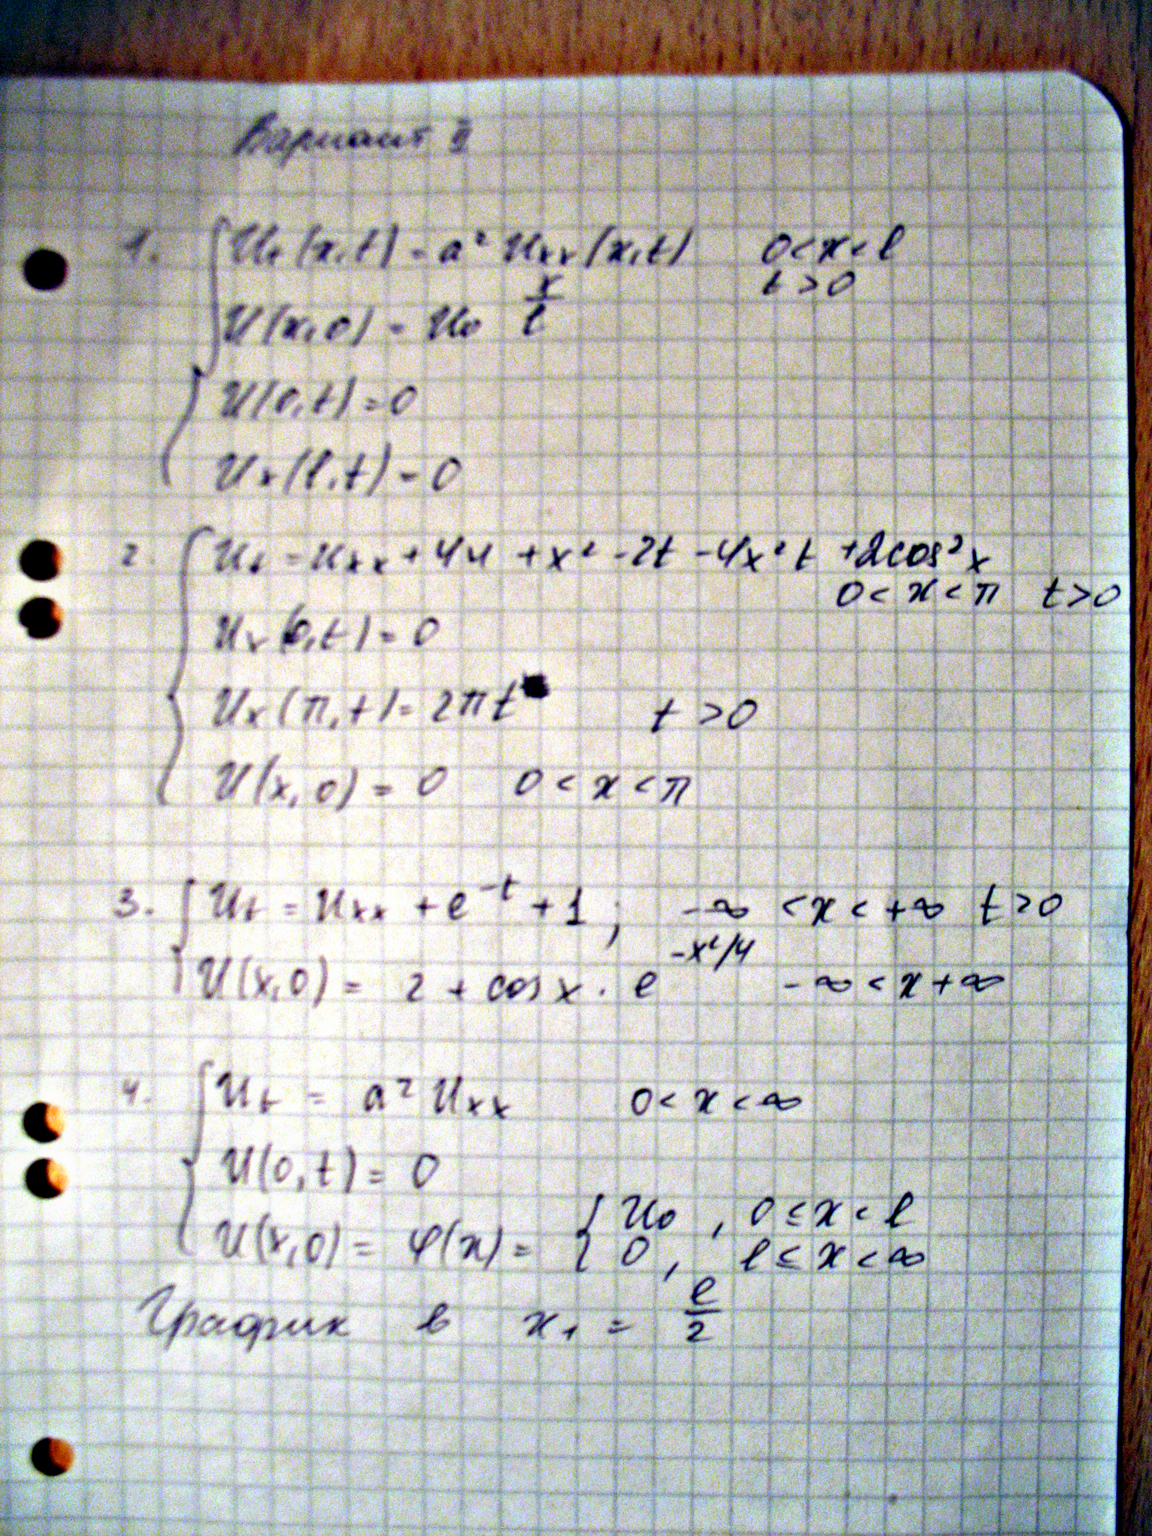 Вариант II
1. { Uₜ(x,t) = a² Uₓₓ(x,t)   0<x<l
t>0
U(x,0) = U₀ x/l
U(0,t) = 0
Uₓ(l,t) = 0
2. { Uₜ = Uₓₓ + 4U + x² - 2t - 4x²t + 2cos²x
0<x<π   t>0
Uₓ(0,t) = 0
Uₓ(π,t) = 2πt   t>0
U(x,0) = 0   0<x<π
3. { Uₜ = Uₓₓ + e^{-t} + 1;   -∞ <x< +∞   t>0
U(x,0) = 2 + cos x · e^{-x²/4}   -∞<x+∞
4. { Uₜ = a² Uₓₓ   0<x<∞
U(0,t) = 0
U(x,0) = φ(x) = { U₀, 0≤x<l
0, l≤x<∞
График в x₁ = l/2